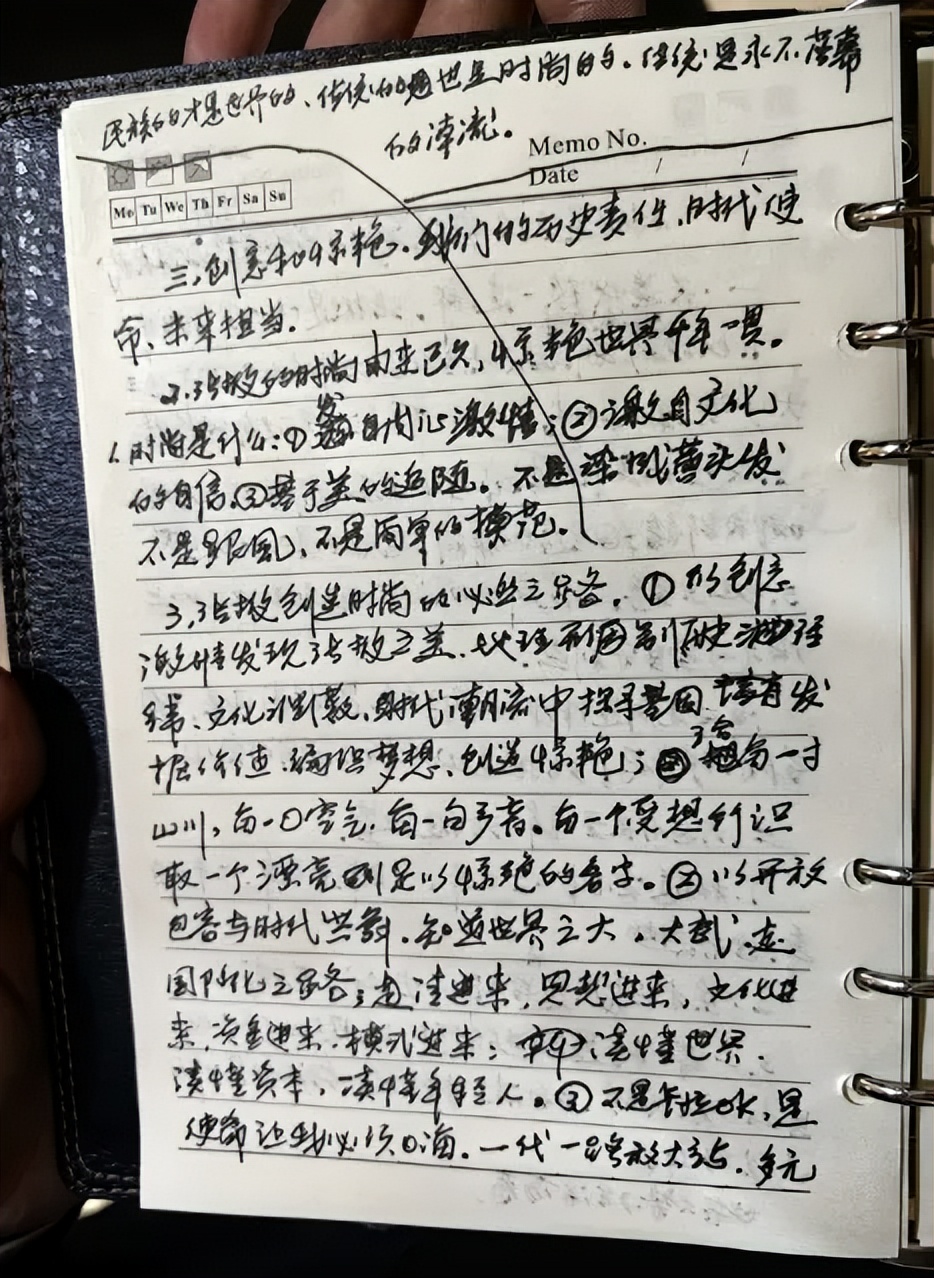 民族的才是世界的、传统的也是时尚的。传统是永不落幕
的漂流。
Memo No.
Date / /
Mo Tu We Th Fr Sa Su
三、创意和惊艳。我们的历史责任、时代使
命、未来担当。
2、的时尚由来已久,惊艳世界千年一贯。
1、时尚是什么:① 发自内心激情;② 源自文化
的自信③基于美的追随。不是染烫头发
不是跟风,不是简单的模范。
3、创造时尚的必选之路。① 以创意
激情发现之美、历史
文化、时代潮流中探寻基因、发
掘价值、编织梦想、创造惊艳;每一寸
山川,每一口空气、每一句。每一个受想行识
取一个漂亮以惊艳的名字。② 以开放
包容与时代共舞。知道世界之大。大、走
国际化之路;请进来,思想进来,文化进
来、资金进来、模式进来;读懂世界、
读懂资本,读懂年轻人。③ 不是卡拉OK,是
使命让我必须。一代一放大、多元